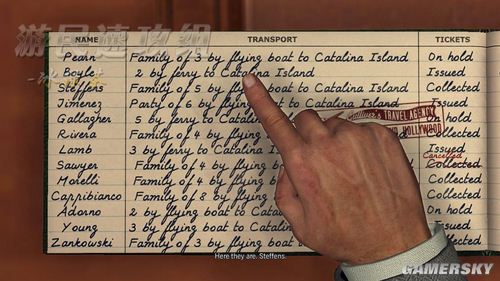 游民速攻组
NAME TRANSPORT TICKETS
Pearn Family of 3 by flying boat to Catalina Island On hold
Boyle 2 by ferry to Catalina Island Issued
Steffens Family of 5 by flying boat to Catalina Island Collected
Jimenez Party of 6 by flying boat to Catalina Island Issued
Gallagher 5 by ferry to On hold
TRAVEL AGENCY
HOLLYWOOD
Rivera Family of 4 by flying Collected
Lamb 3 by ferry to Catalina Issued
Cancelled
Sawyer Family of 4 by flying Collected
Morelli Family of 4 by flying Collected
Cappibianco Family of 8 by flying Collected
Adorno 2 by flying boat to On hold
Young 3 by flying boat to Issued
Zankowski Family of 3 by flying Collected
Here they are. Steffens.
GAMERSKY